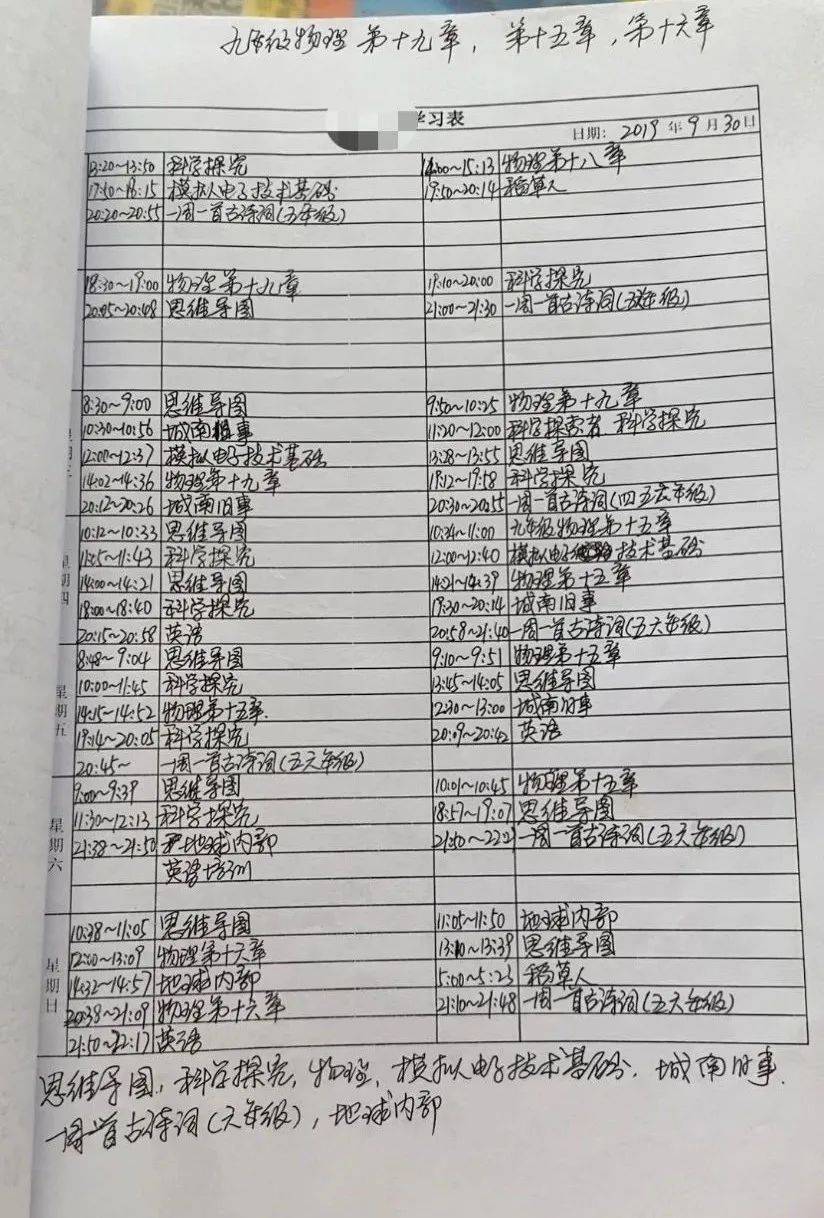 九年级物理第十九章，第十五章，第十六章
学习表
日期： 2019年9月30日
13:20~13:50 科学探究 14:00~15:13 物理第十八章
17:50~18:15 模拟电子技术基础 19:50~20:14 稻草人
20:20~20:55 一周一首古诗词(五年级)
18:30~19:00 物理第十九章 19:10~20:00 科学探究
20:05~20:48 思维导图 21:00~21:30 一周一首古诗词(五年级)
8:30~9:00 思维导图 9:50~10:25 物理第十九章
10:30~10:56 城南旧事 11:20~12:00 科学探索者.科学探究
12:00~12:37 模拟电子技术基础 13:28~13:55 思维导图
14:02~14:36 物理第十九章 19:12~19:58 科学探究
20:12~20:26 城南旧事 20:30~20:55 一周一首古诗词(四五六年级)
星期四
10:12~10:33 思维导图 10:34~11:00 九年级物理第十五章
11:25~11:43 科学探究 12:00~12:40 模拟电子技术基础
14:00~14:21 思维导图 14:21~14:39 物理第十五章
18:00~18:40 科学探究 19:30~20:14 城南旧事
20:15~20:58 英语 20:58~21:40 一周一首古诗词(五六年级)
星期五
8:48~9:04 思维导图 9:10~9:51 物理第十五章
10:00~11:45 科学探究 13:45~14:05 思维导图
14:15~14:52 物理第十五章. 12:30~13:00 城南旧事
19:14~20:05 科学探究 20:09~20:42 英语
20:45~ 一周一首古诗词(五六年级)
星期六
9:00~9:39 思维导图 10:01~10:45 物理第十五章
11:30~12:13 科学探究 18:57~19:07 思维导图
21:38~21:50 地球内部 21:50~22:21 一周一首古诗词(五六年级)
英语培训
星期日
10:38~11:05 思维导图 11:05~11:50 地球内部
12:00~13:09 物理第十六章 13:10~13:39 思维导图
14:32~14:57 地球内部 5:00~5:23 稻草人
20:38~21:09 物理第十六章 21:10~21:48 一周一首古诗词(五六年级)
21:50~22:17 英语
思维导图，科学探究，物理，模拟电子技术基础，城南旧事.
一周一首古诗词(六年级)，地球内部